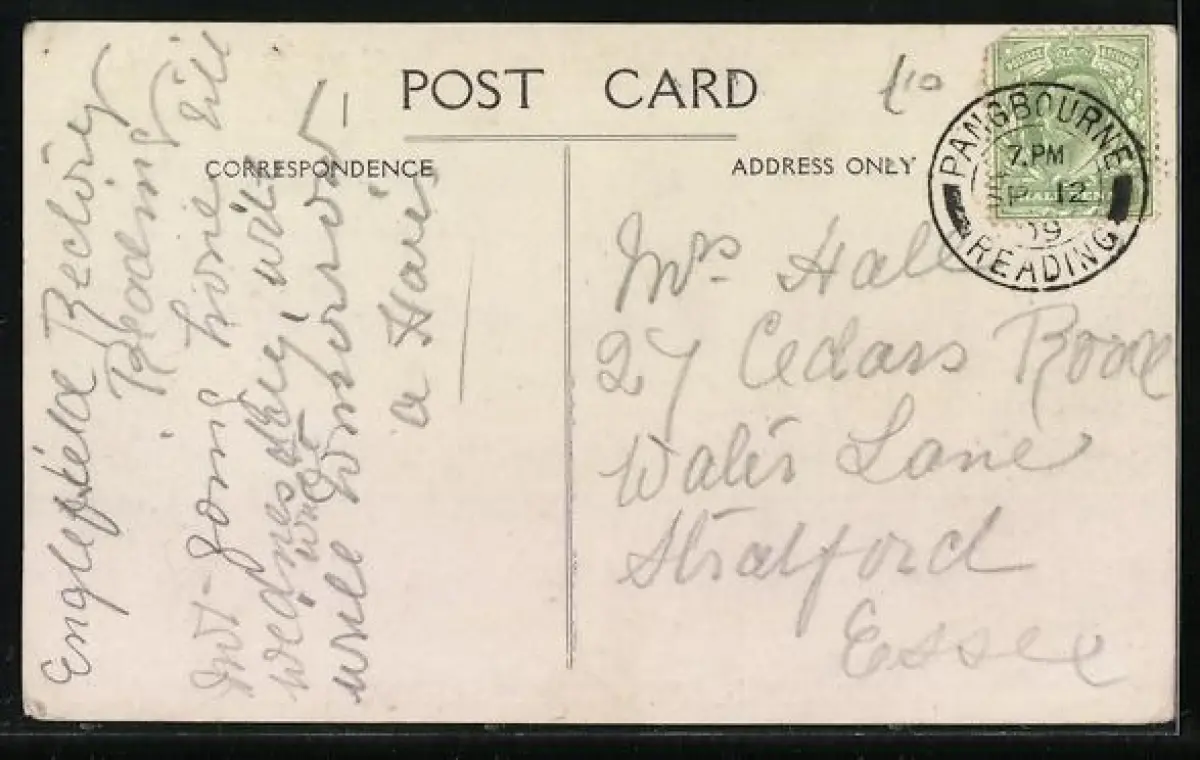 POST CARD
£10
CORRESPONDENCE
ADDRESS ONLY
PANGBOURNE
7.PM
12
09
READING
Englefield Rectory
Reading
not going home till
wednesday, will
will
will tomorrow
a Haris
Mrs Hall
27 Cedars Road
Water Lane
Stratford
Essex